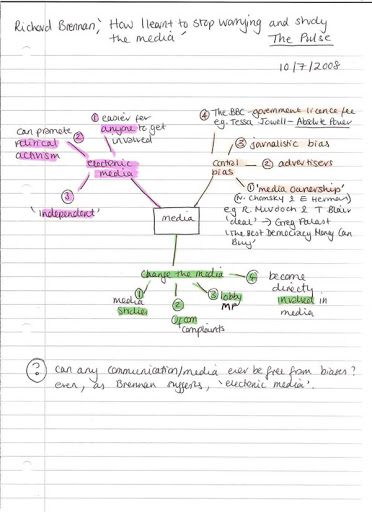 Richard Brennan, 'How I learnt to stop worrying and study
the media', The Pulse
10/7/2008
① easier for
anyone to get
involved
②
can promote
political
activism
electronic
media
③
'independent'
④ The BBC - government licence fee
eg. Tessa Jowell - Absolute Power
③ jornalistic bias
② advertisers
control
bias
① 'media ownership'
(N. Chomsky & E Herman)
eg R. Murdoch & T Blair
'deal' → Greg Palast
'The Best Democracy Money Can
Buy'
media
Change the media
① media
studies
② Ofcom
complaints
③ lobby
MP
④ become
directly
involved in
media
? Can any communication/media ever be free from biases?
even, as Brennan suggests, 'electonic media'.